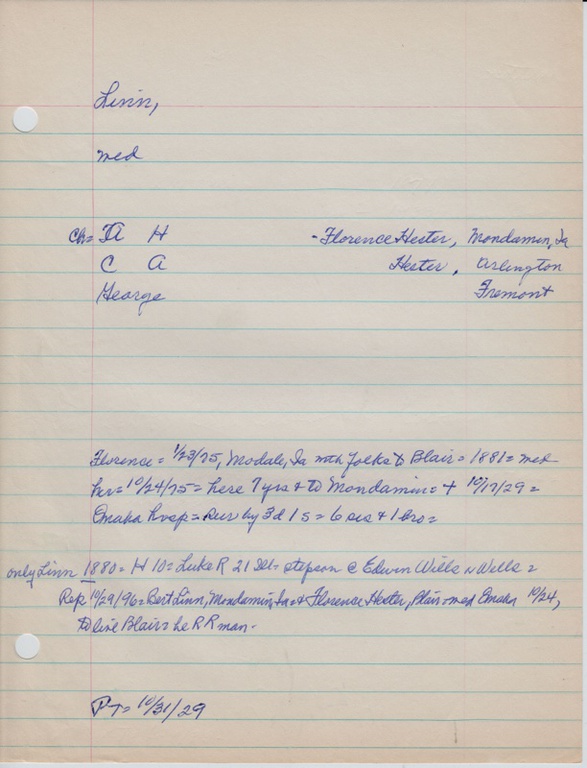 Linn,
med
Ch= H - Florence Hester, Mondamin, Ia
C A Hester, Arlington
George Fremont
Florence = 1/23/75, Modale, Ia with folks to Blair = 1881 = med
her = 10/24/95 = here 7 yrs + to Mondamin = + 10/17/29 =
Omaha Hosp = sur by 3d 1 s = 6 sis + 1 bro =
only Linn 1880 = H 10 = Luke R 21 stepson C Edwin Wells N Wells =
Rep 10/29/96 = Bert Linn, Mondamin, Ia = + Florence Hester, Blair = med Omaha 10/24,
to live Blair = he R R man.
PT = 10/31/29